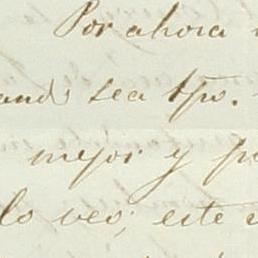 Por ahora
sea tpo.
mejor y
lo veo; este